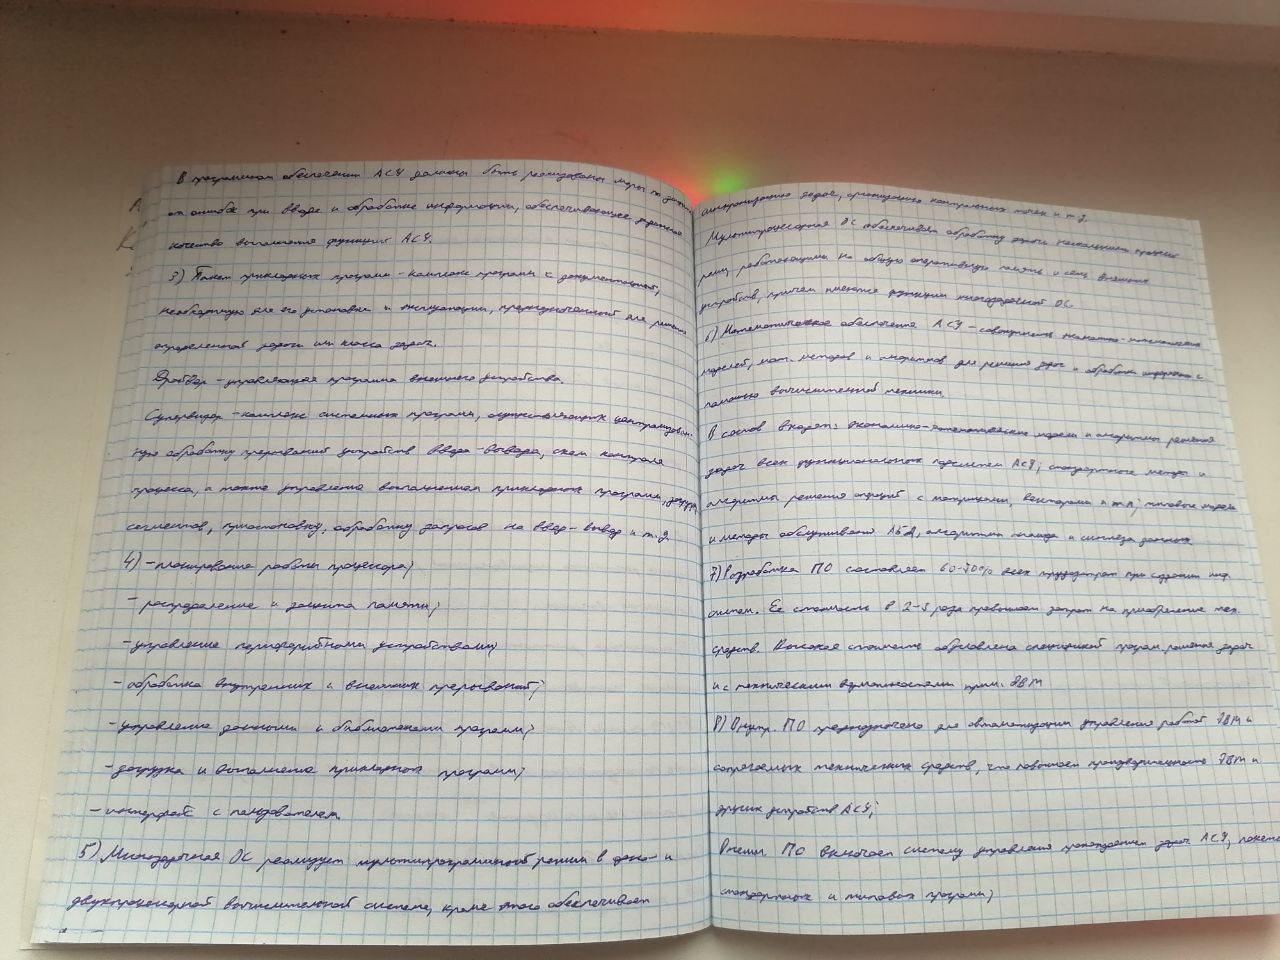 В программном обеспечении АСУ должны быть реализованы меры по защите
от ошибок при вводе и обработке информации, обеспечивающее заданное
качество выполнения функций АСУ.
3) Пакет прикладных программ - комплекс программ с документацией,
необходимую для его установки и эксплуатации, предназначенный для решения
определенной задачи или класса задач.
Драйвер - управляющая программа внешнего устройства.
Супервизор - комплекс системных программ, осуществляющих централизован-
ную обработку прерываний устройств ввода-вывода, схем контроля
процесса, а также управление выполнением прикладных программ, загрузку
сегментов, приостановку, обработку запросов на ввод-вывод и т.д.
4) - планирование работы процессора;
- распределение и защита памяти;
- управление периферийными устройствами;
- обработка внутренних и внешних прерываний;
- управление данными и библиотеками программ;
- загрузка и выполнение прикладной программ;
- интерфейс с пользователем.
5) Многозадачная ОС реализует мультипрограммный режим в одно- и
двухпроцессорной вычислительной системе, кроме этого обеспечивает
синхронизацию задач, организацию контрольных точек и т.д.
Мультипроцессорная ОС обеспечивает обработку задачи несколькими процессо-
рами, работающими на общую оперативную память и сеть внешних
устройств, причем имеются функции многозадачной ОС.
6) Математическое обеспечение АСУ - совокупность экономико-математических
моделей, мат. методов и алгоритмов для решения задач и обработки информации с
помощью вычислительной техники.
В состав входят: экономико-математические модели и алгоритмы решения
задач всех функциональных подсистем АСУ; стандартные методы и
алгоритмы решения операций с матрицами, векторами и т.п; типовые модели
и методы обслуживания АБД, алгоритмы анализа и синтеза данных
7) Разработка ПО составляет 60-70% всех трудозатрат при создании инф.
систем. Ее стоимость в 2-5 раза превышает затрат на приобретение тех.
средств. Высокая стоимость обусловлена спецификой програм. решения задач
и с техническими возможностями прим. ЭВМ
8) Внутр. ПО предназначено для автоматизации управления работой ЭВМ и
сопрягаемых технических средств, что повышает производительность ЭВМ и
других устройств АСУ;
Внешн. ПО включает систему управления прохождением задач АСУ, пакеты
стандартных и типовых программ;